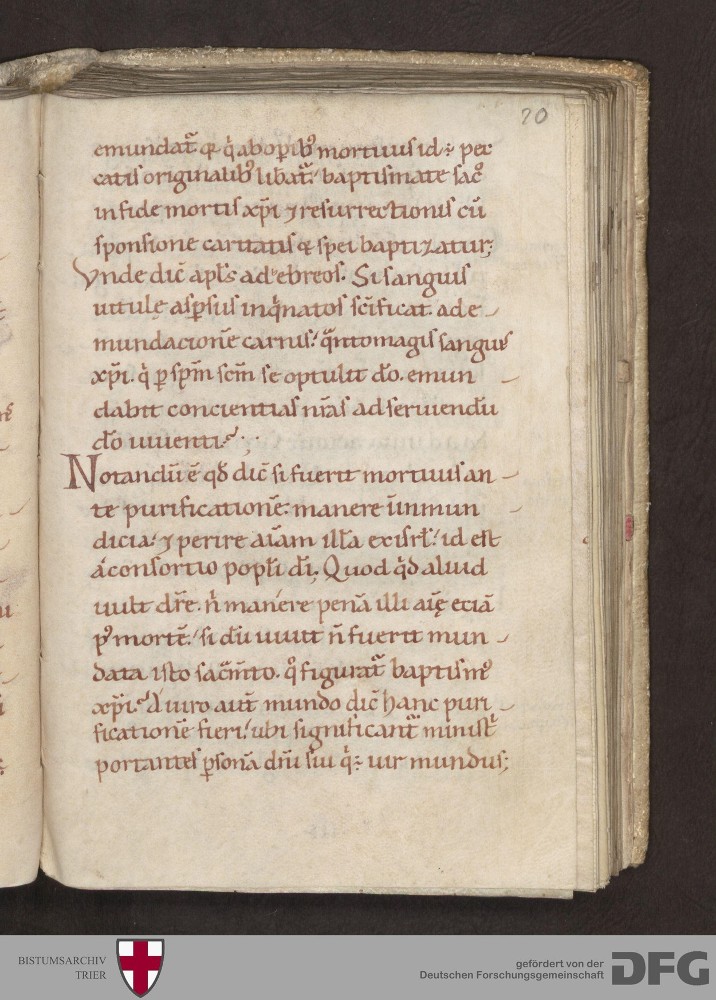 70
emundat᷑ q̨ q̇ ab op̱ib᷒ mortuus id÷ pec
catis originalib᷒ libat᷑. baptismate sac͛
in fide mortis xp̄i ⁊ resurrectionis cū
sponsione caritatis & spei baptizatur;
Vnde dic̄ apl̄s ad ebreos. Si sanguis
uitulę asp̱sus inq̇natos sc̄ificat ad e-
mundacionē carnis. q̄nto magis sanguis
xp̄i. q̇ p̱ sp̄m sc̄m se optulit dō. emun-
dabit concientias nr̄as ad seruiendū
dō uiuenti.
Notandū ē qđ dic̄ si fuerit mortuus an-
te purificationē. manere īnmun-
dicia. ⁊ perire aīam illā ex isrl̄. id est
a consortio popl̄i dī. Quod q̇d aliud
uult dr̄e. n̓ manere penā illi aīę eciā
p᷒ mortē. si dū uiuit n̄ fuerit mun-
data isto sacm̄to. q͛ figurat᷑ baptism͛
xp̄i. A uiro aut̄ mundo dic̄ hanc puri-
ficationē fieri. ubi significant᷑ minist̓
portantes p̱sonā dn̄i sui q̇÷ uir mundus;
BISTUMSARCHIV
TRIER
gefördert von der
Deutschen Forschungsgemeinschaft
DFG